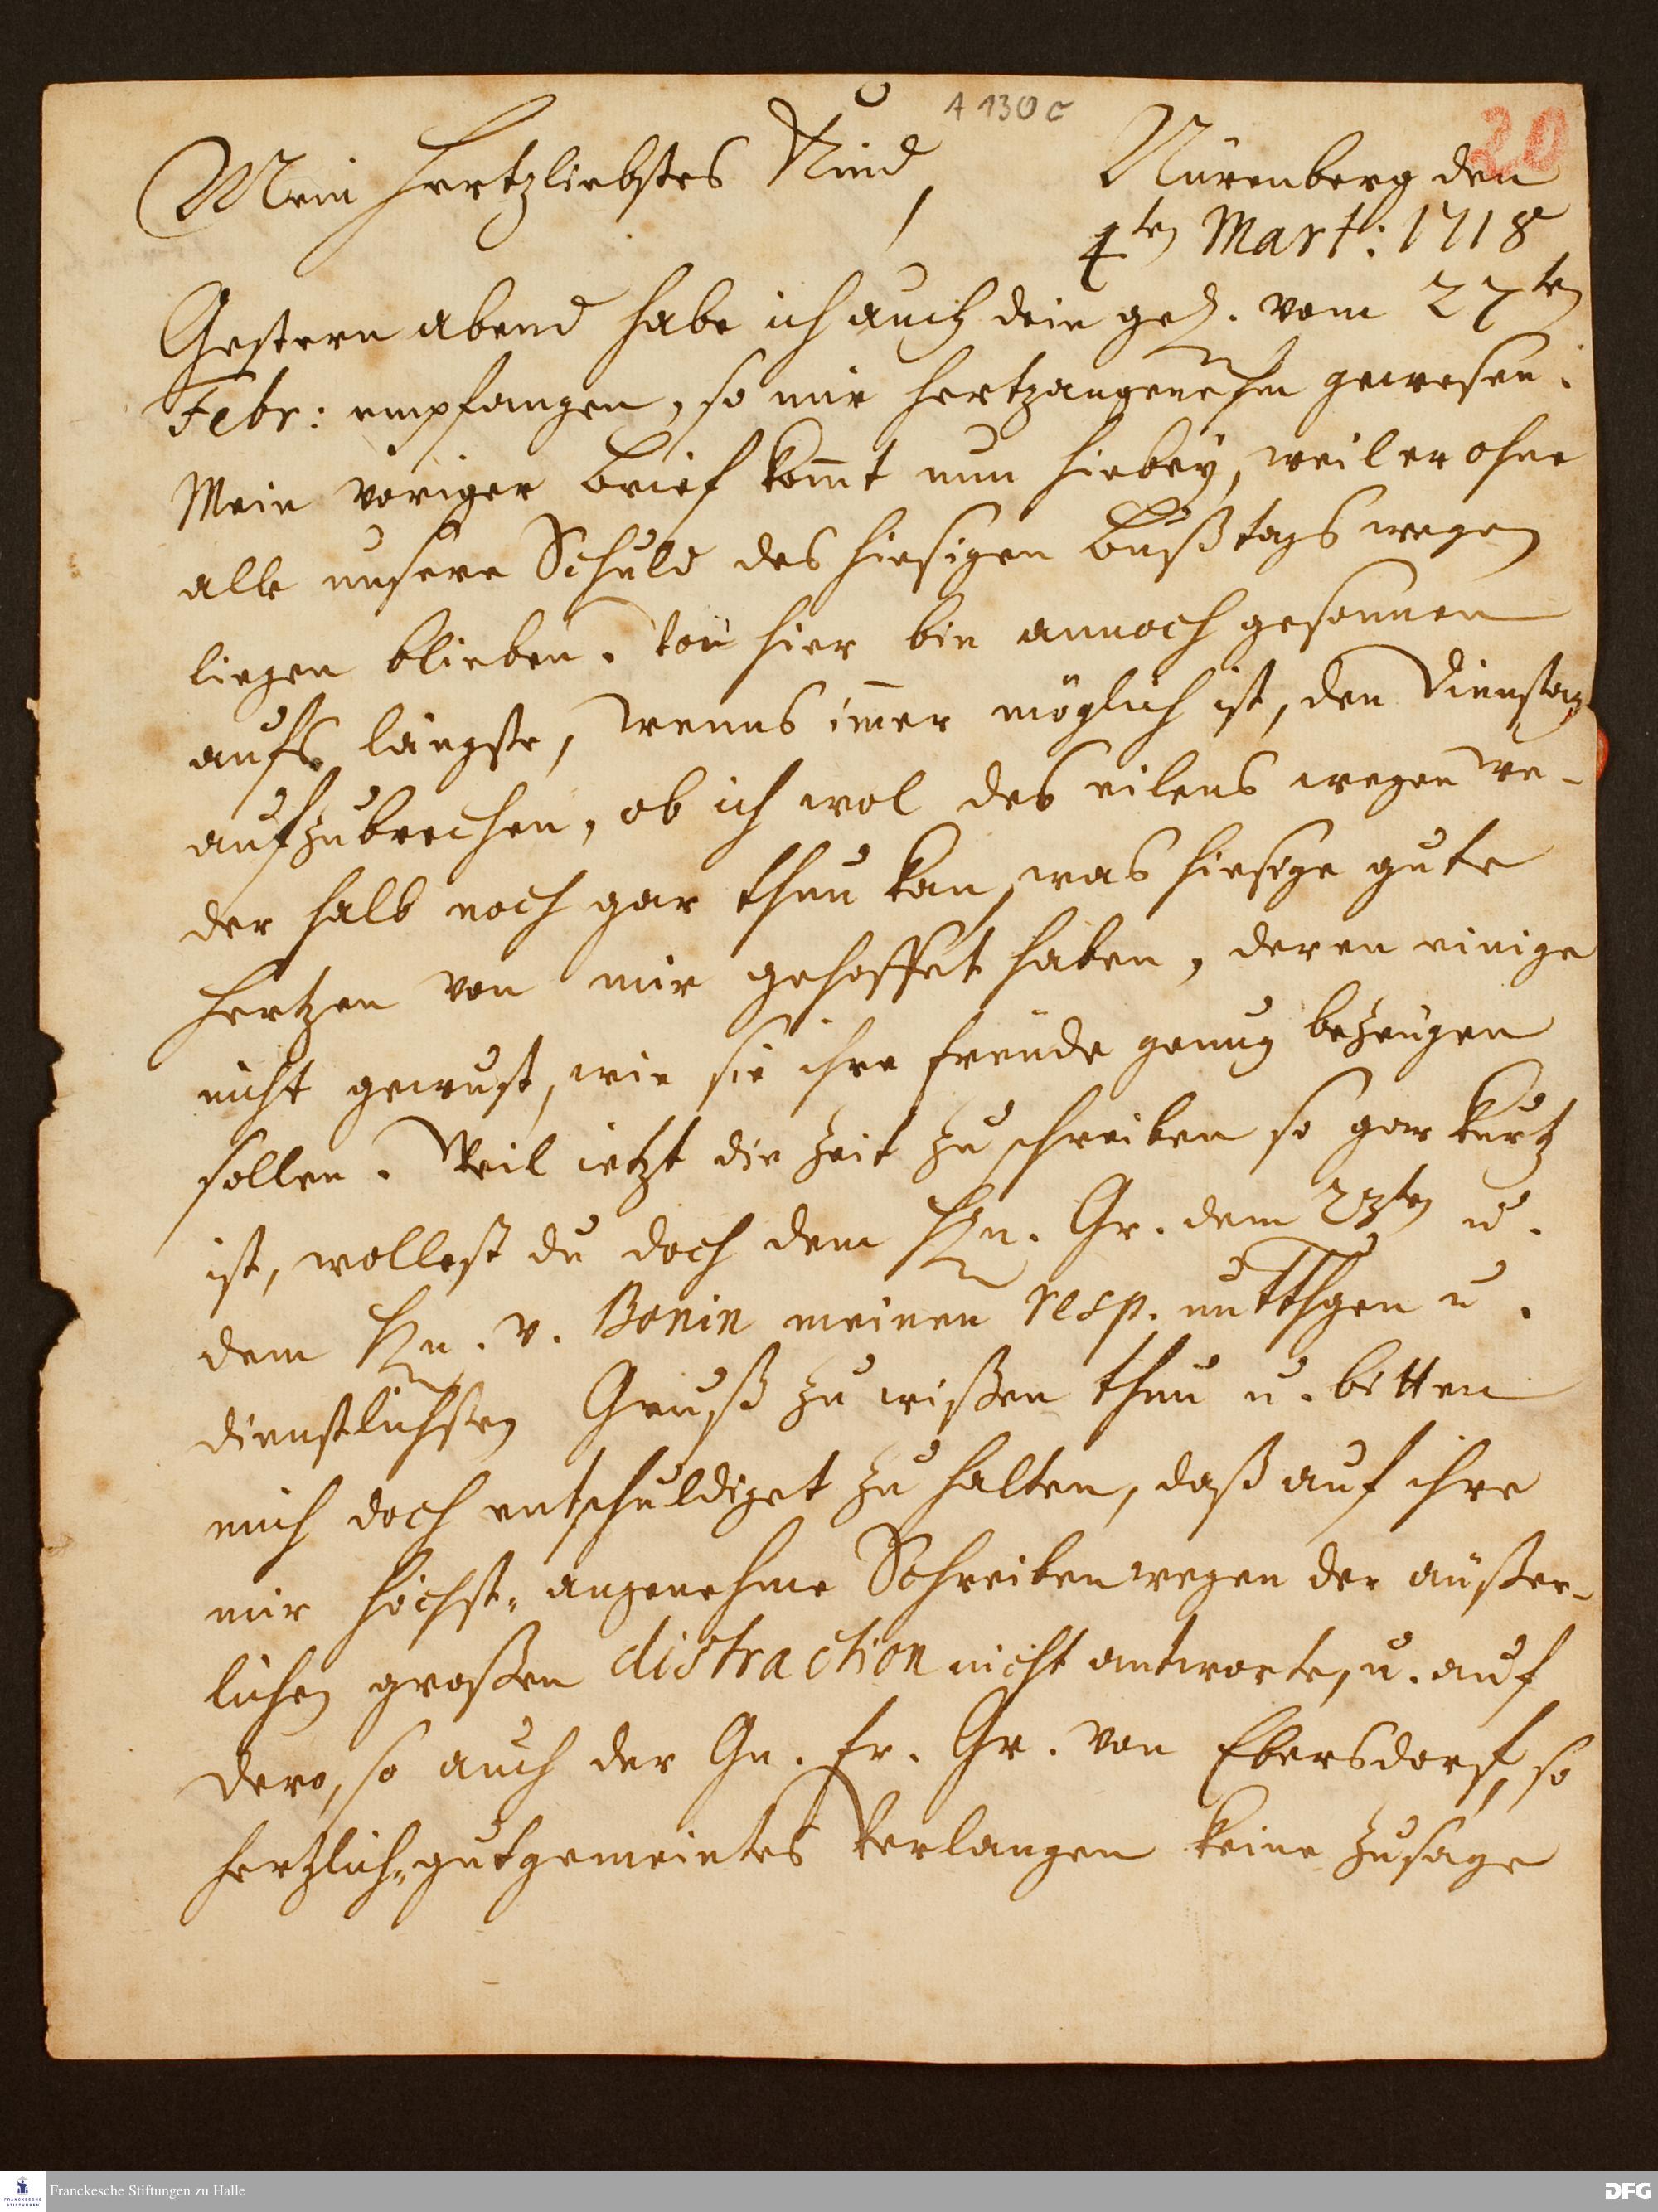 A 130 c
20
Mein Hertzliebstes Kind,
Nürenberg den
4ten Mart: 1718
Gestern abend habe ich auch dein vom 27ten
Febr: empfangen, so mir hertzangenehm gewesen.
Mein voriger brief kom̄t nun hiebey, weil er ohne
alle unsere Schuld des hiesigen bußtags wegen
liegen blieben. Von hier bin annoch gesonnen
aufs längste, wenns im̄er möglich ist, den Dienstag
aufzubrechen, ob ich wol des eilens wegen we-
der halb noch gar thun kan, was hiesige gute
Hertzen von mir gehoffet haben, deren einige
nicht gewust, wie sie ihre freude genug bezeugen
sollen. Weil ietzt die Zeit zu schreiben so gar kurtz
ist, wollest du doch dem Hn. Gr. dem 23ten u.
dem Hn. v. Bonin meinen resp. untthgen u.
dienstlichsten Gruß zu wißen thun u. bitten
mich doch entschuldiget zu halten, daß auf ihre
mir höchst-angenehme Schreiben wegen der äußer-
lichen großen distraction nicht antworte, u. auf
dero, so auch der Gn. Fr. Gr. von Ebersdorf, so
hertzlich-gutgemeintes Verlangen keine Zusage
FRANCKESCHE STIFTUNGEN
Franckesche Stiftungen zu Halle
DFG